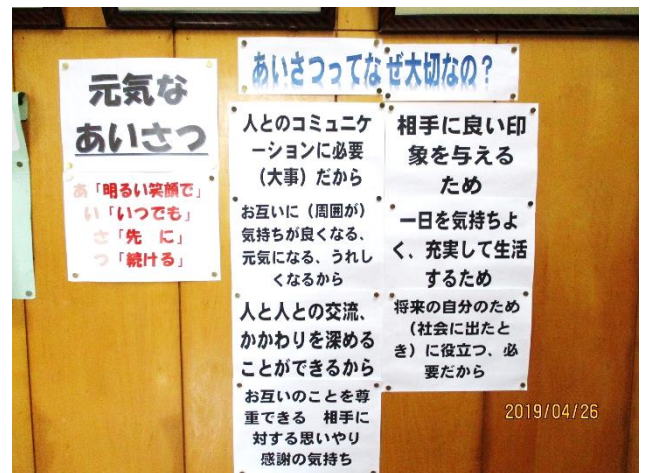 元気な
あいさつ
あ「明るい笑顔で」
い「いつでも」
さ「先　に」
つ「続ける」
あいさつってなぜ大切なの？
人とのコミュニケ
ーションに必要
（大事）だから
お互いに（周囲が）
気持ちが良くなる、
元気になる、うれし
くなるから
人と人との交流、
かかわりを深める
ことができるから
お互いのことを尊
重できる　相手に
対する思いやり
感謝の気持ち
相手に良い印
象を与える
ため
一日を気持ちよ
く、充実して生活
するため
将来の自分のため
（社会に出たと
き）に役立つ、必
要だから
2019/04/26